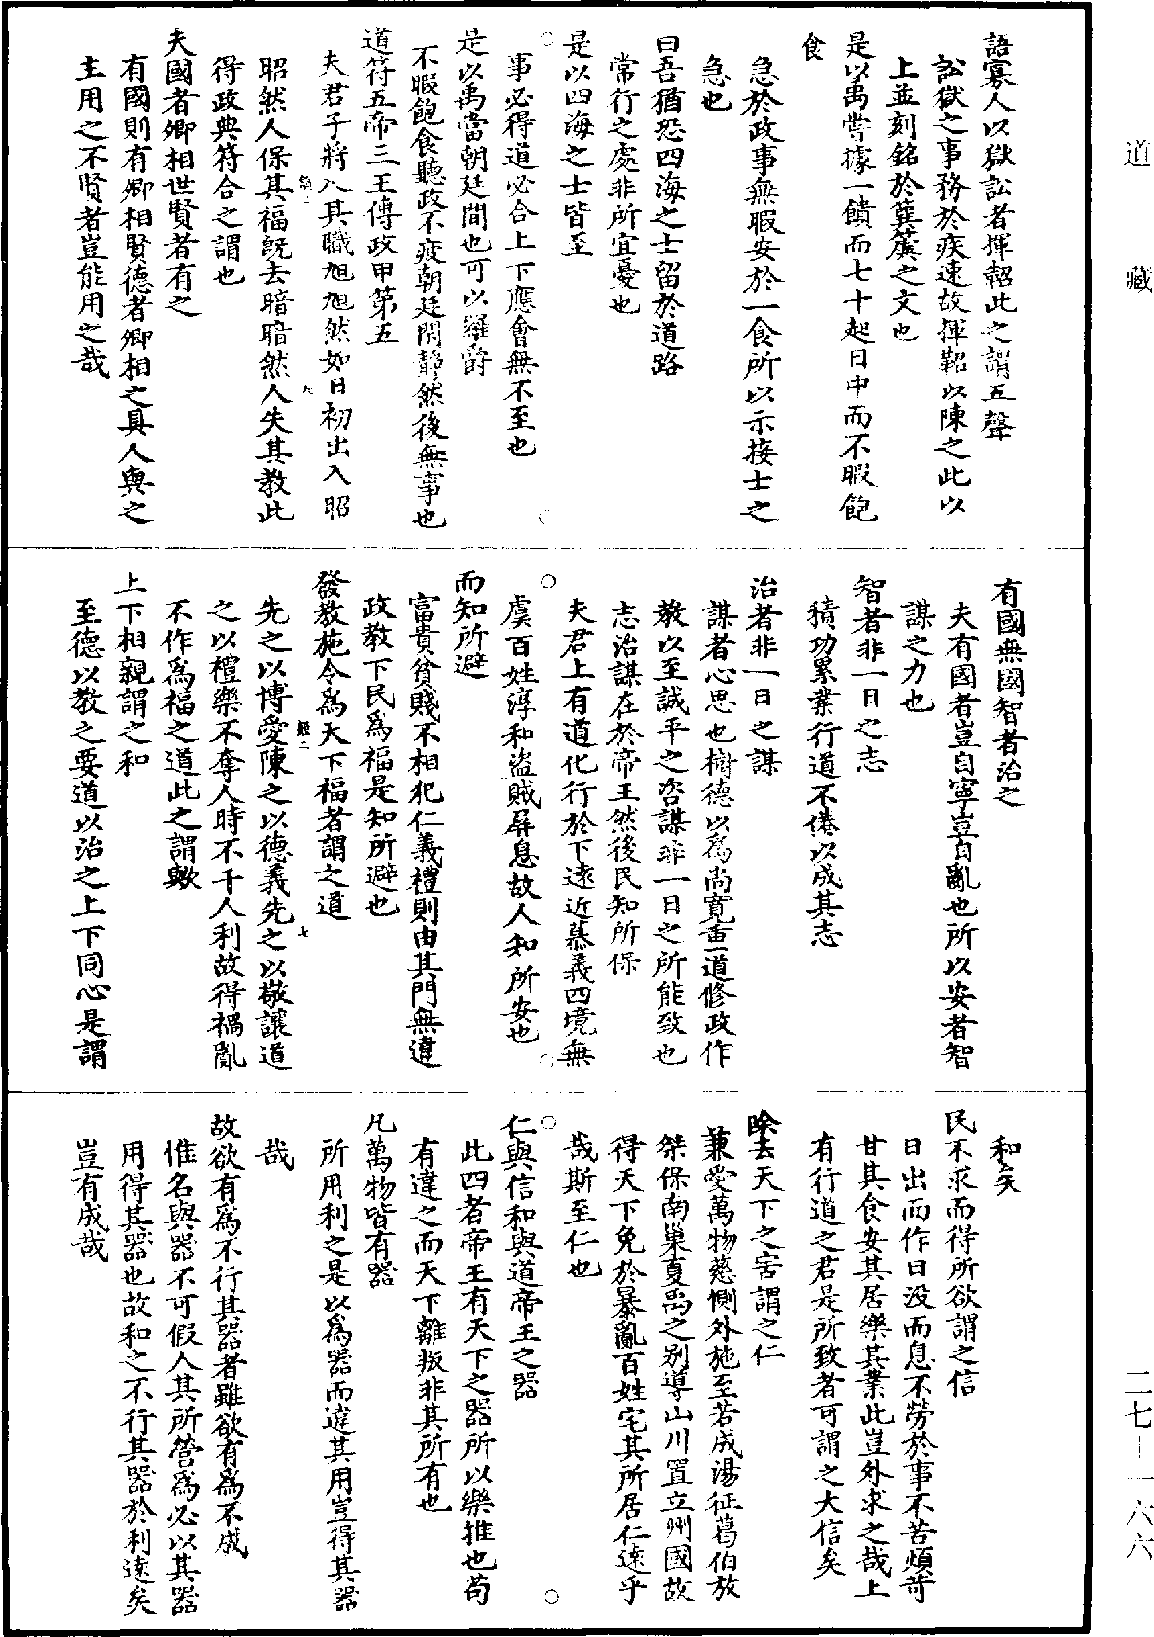 道藏
語寡人以獄訟者揮鞀此之謂五聲
訟獄之事務於疾速故揮鞀以陳之此以
上並刻銘於簨簴之文也
是以禹嘗據一饋而七十起日中而不暇飽
食
急於政事無暇安於一食所以示接士之
急也
曰吾猶恐四海之士留於道路
常行之處非所宜憂也
是以四海之士皆至
事必得道必合上下應會無不至也
是以禹當朝廷間也可以羅爵
不暇飽食聽政不疲朝廷閒靜然後無事也
道符五帝三王傳政甲第五
夫君子將入其職旭旭然如日初出入昭
昭然人保其福旣去暗暗然人失其教此
得政典符合之謂也
夫國者卿相世賢者有之
有國則有卿相賢德者卿相之具人與之
主用之不賢者豈能用之哉
有國無國智者治之
夫有國者豈自寧豈自亂也所以安者智
謀之力也
智者非一日之志
積功累業行道不倦以成其志
治者非一日之謀
謀者心思也樹德以爲尚寛重一道修政作
教以至誠平之咨謀非一日之所能致也
志治謀在於帝王然後民知所保
夫君上有道化行於下遠近慕義四境無
虞百姓淳和盜賊屏息故人知所安也
而知所避
富貴貧賤不相犯仁義禮則由其門無違
政教下民爲福是知所避也
發教施令爲天下福者謂之道
先之以博愛陳之以德義先之以敬讓道
之以禮樂不奪人時不干人利故得禍亂
不作爲福之道此之謂歟
上下相親謂之和
至德以教之要道以治之上下同心是謂
和矣
民不求而得所欲謂之信
日出而作日没而息不勞於事不苦煩苛
甘其食安其居樂其業此豈外求之哉上
有行道之君是所致者可謂之大信矣
除去天下之害謂之仁
兼愛萬物慈惻外施至若成湯征葛伯放
桀保南巢夏禹之别導山川置立州國故
得天下免於暴亂百姓宅其所居仁遠乎
哉斯至仁也
仁與信和與道帝王之器
此四者帝王有天下之器所以樂推也苟
有違之而天下離叛非其所有也
凡萬物皆有器
所用利之是以爲器而違其用豈得其器
哉
故欲有爲不行其器者雖欲有爲不成
惟名與器不可假人其所營爲必以其器
用得其器也故和之不行其器於利遠矣
豈有成哉
二七-一六六